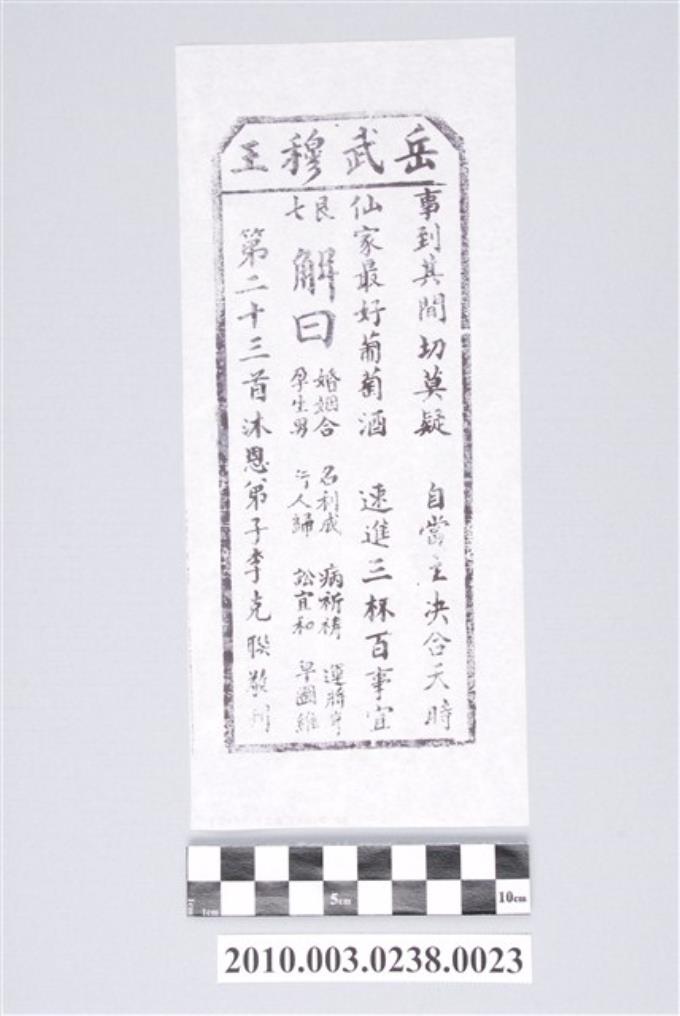 岳武穆王
事到其間切莫疑 自當主決合天時
仙家最好葡萄酒 速進三杯百事宜
艮七
解曰
婚姻合 名利成 病祈禱 運將亨
孕生男 行人歸 訟宜和 早圖維
第二十三首沐恩弟子李克聯敬刊
5cm
10cm
1cm
2010.003.0238.0023